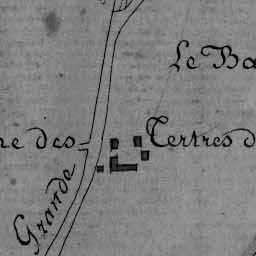 Le Ba
ne des Tertres d
Grande